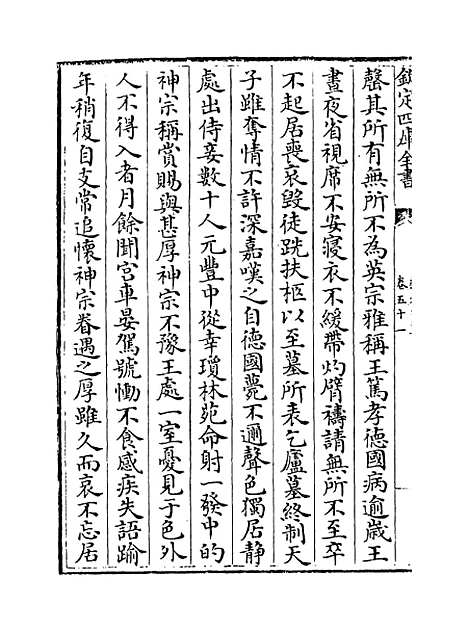 欽定四庫全書
卷五十一
罄其所有無所不為英宗雅稱王篤孝德國病逾歲王
晝夜省視席不安寢衣不緩帶灼臂禱請無所不至卒
不起居喪哀毀徒跣扶柩以至墓所表乞廬墓終制天
子雖奪情不許深嘉嘆之自德國薨不邇聲色獨居靜
處出侍妾數十人元豐中從幸瓊林苑命射一發中的
神宗稱賞賜與甚厚神宗不豫王處一室憂見于色外
人不得入者月餘聞宮車晏駕號慟不食感疾失語踰
年稍復自支常追懷神宗眷遇之厚雖久而哀不忘居